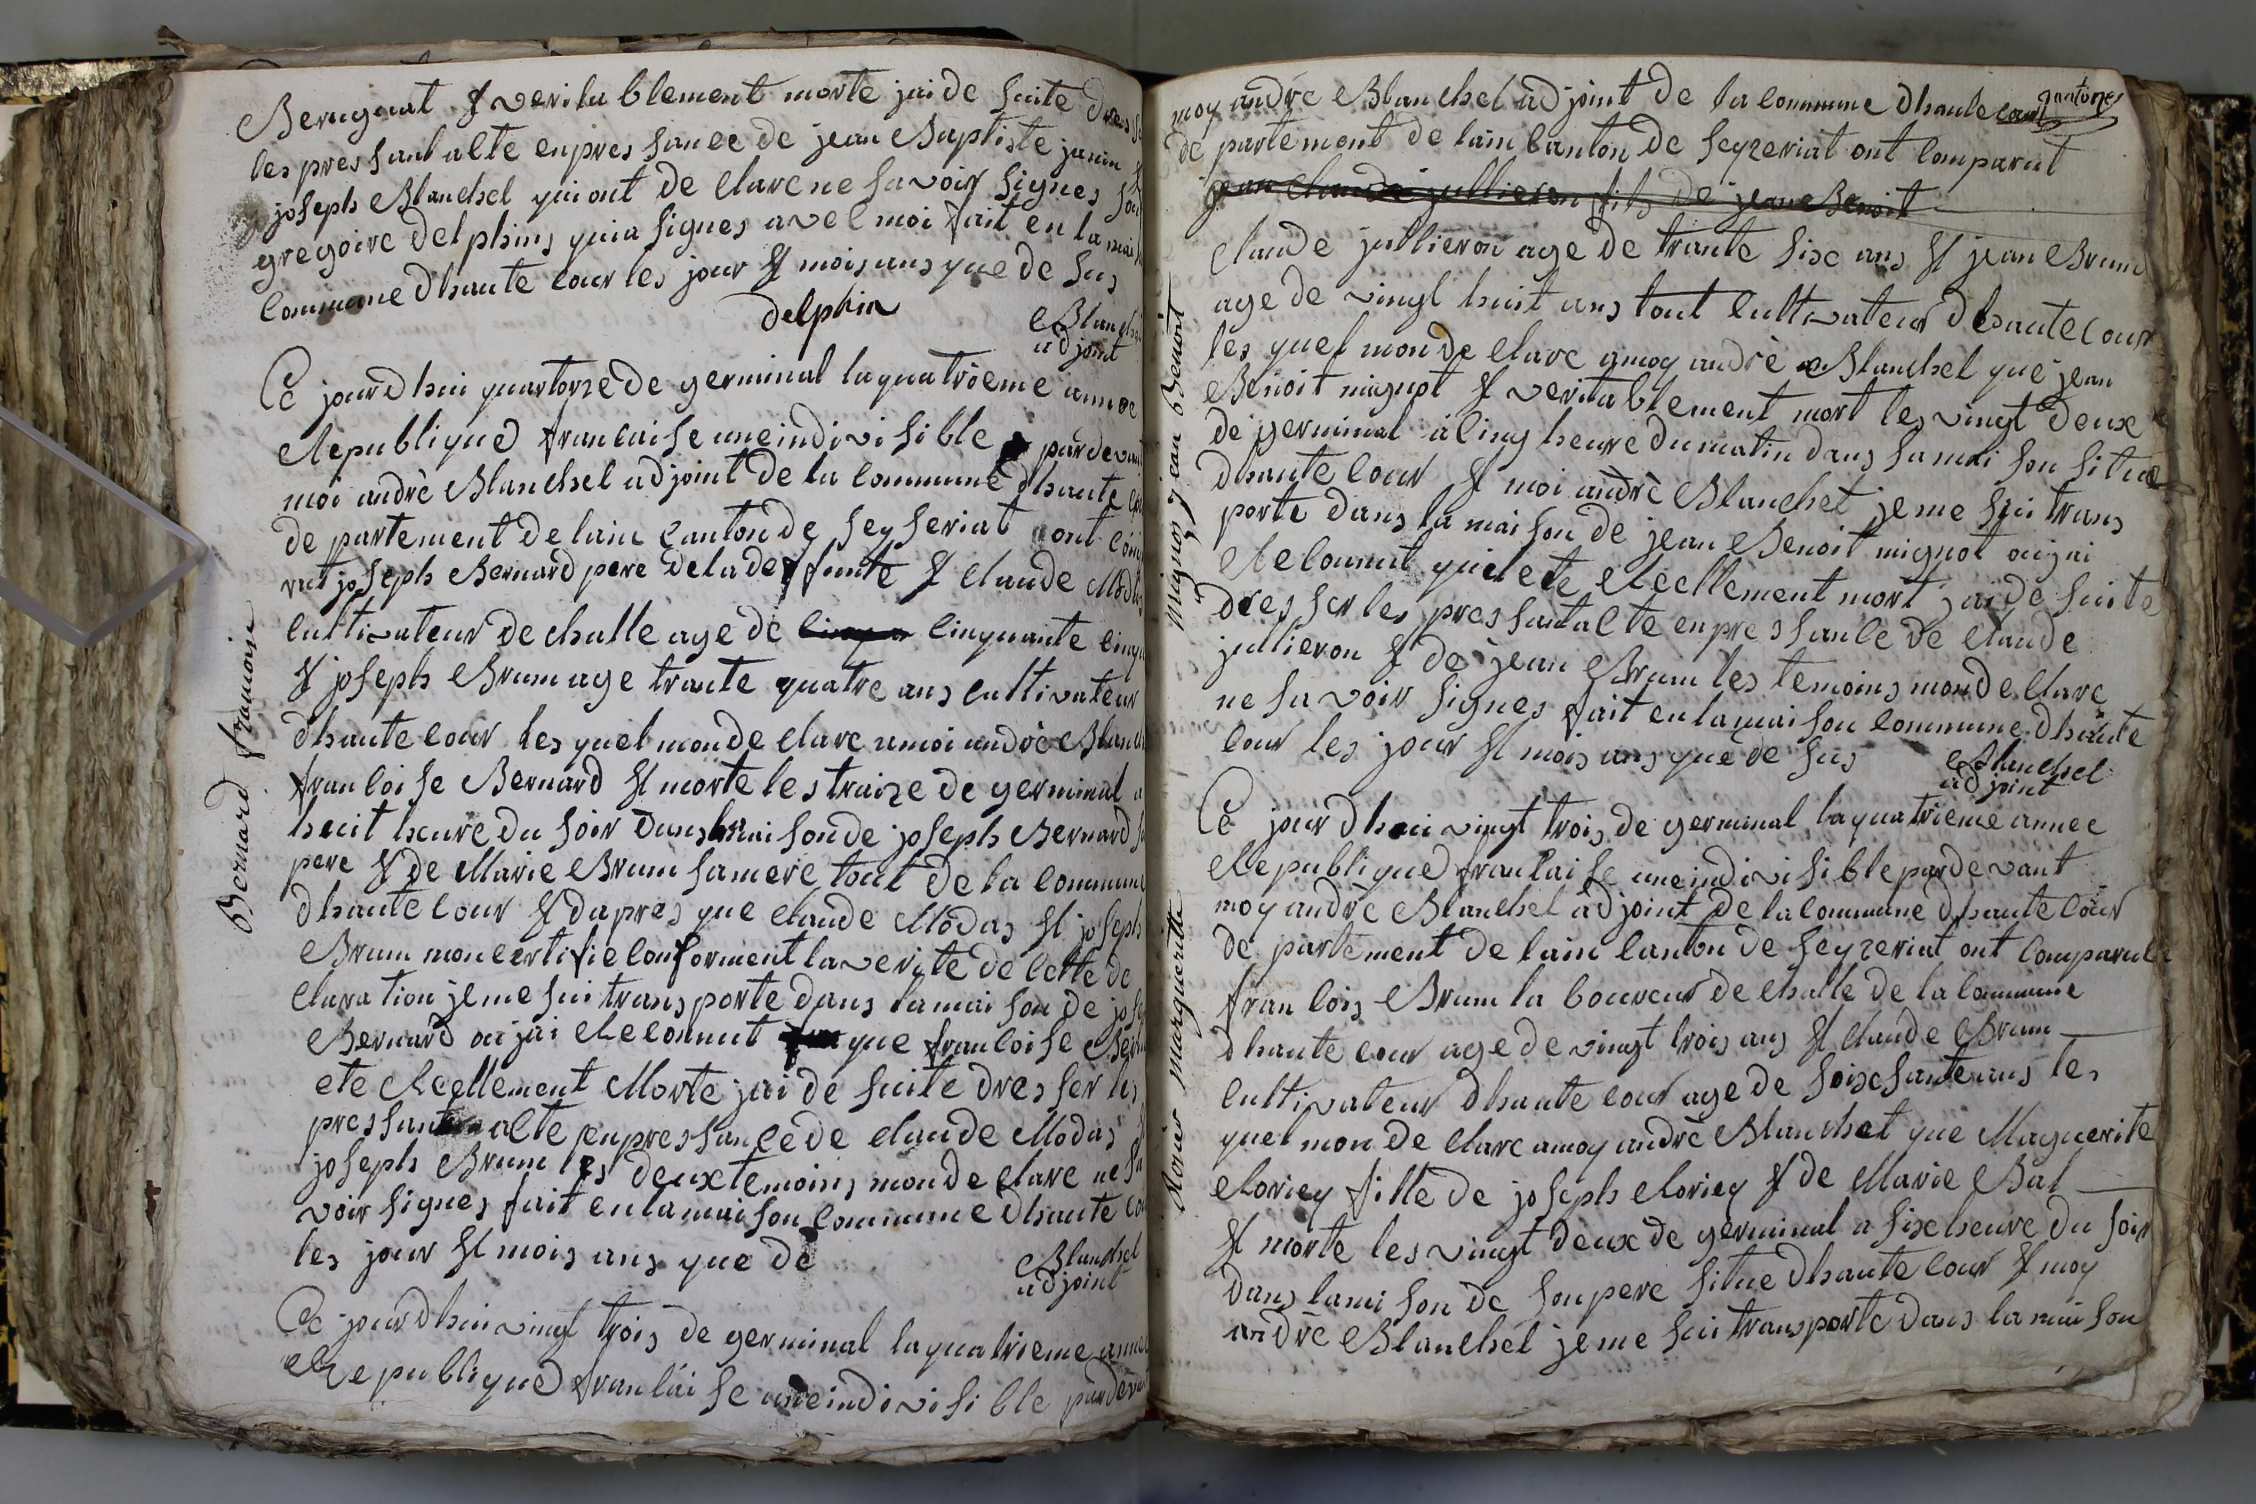 Berugnat et veritablement morte jai de suite dres
les pressant alte enpressance de jean Baptiste janin et
joseph Blanchet qui ont declare ne savoir signes
gregoire delphins quia signes avec moi fait en la mai
Commune dhaute cour les jour et mois ans que de sus
delphin
Blanchet
adjoint
Ce jourdhui quartorze de germinal laquatrieme annee
Republique francaise une indivisible pardevant
moi andrè Blanchet adjoint de la commune dhaute
departement de lain Canton de seyseriat ont com
rut joseph Bernard pere deladeffunte et claude Modas
Cultivateur de challe age de cinquante cinq
et joseph Brum age trante quatre ans cultivateur
dhaute cour lesquel monde clare amoi andrè Blanchet
francoise Bernard et morte les traize de germinal a
huit heure du soir dans maison de joseph Bernard
pere et de Marie Brum samere tout de la commune
dhaute cour et dapres que claude Modas et joseph
Brum mon certifie conforment laverite de cette de
claration jeme sui transporte dans lamaison de jos
Bernard oujai Reconnut que francoise Ber
ete Reellement Morte jai de suite dresser les
pressant alte enpressance de claude Modas
joseph Brum les deux temoins monde clare ne sa
voir signes fait enlamaison commune dhaute
les jour et mois ans que de
Blanchet
adjoint
Ce jourdhui vingt trois de germinal laquatrieme annee
Republique francaise uneindivisible pardevant
Bernard francoise
moy andrè Blanchet adjoint de la commune dhaute cour
departement de lain Canton de seyzeriat ont comparut
jean claude jullieron fils de jean Benoit
Claude jullieron age de trante sixe ans et jean Brum
age de vingt huit ans tout Cultivateur dhaute cour
les quel monde clare amoy andrè Blanchet que jean
Benoit mignot et veritablement mort les vingt deux
de germinal àcinq heure dumatin dans samaison situe
dhaute cour et moi andrè Blanchet jeme sui trans
porte dans la maison de jean Benoit mignot oujai
Reconnut quilete Reellement mort jai de suite
dresser les pressant alte enpressance de claude
jullieron et de jean Brum les temoins monde clare
ne savoir signes fait enlamaison commune dhaute
cour les jour et mois ans que de sus
Blanchet
adjoint
Mignoz jean Benoit
Ce jourdhui vingt trois de germinal laquatrieme annee
Republique francaise uneindivisible pardevant
moy andrè Blanchet adjoint de lacommune dhaute cour
departement de lain canton de seyzeriat ont comparut
francois Brum laboureur de challe de la commune
dhaute cour age de vingt trois ans et claude Brum
cultivateur dhaute cour age de soixsante ans les
quel monde clare amoy andrè Blanchet que Maguerite
Roriey fille de joseph Roriey et de Marie Bal
et morte les vingt deux de germinal a sixe heure du soir
dans lamison de sonpere situe dhaute cour et moy
andrè Blanchet jeme sui transporte dans la maison